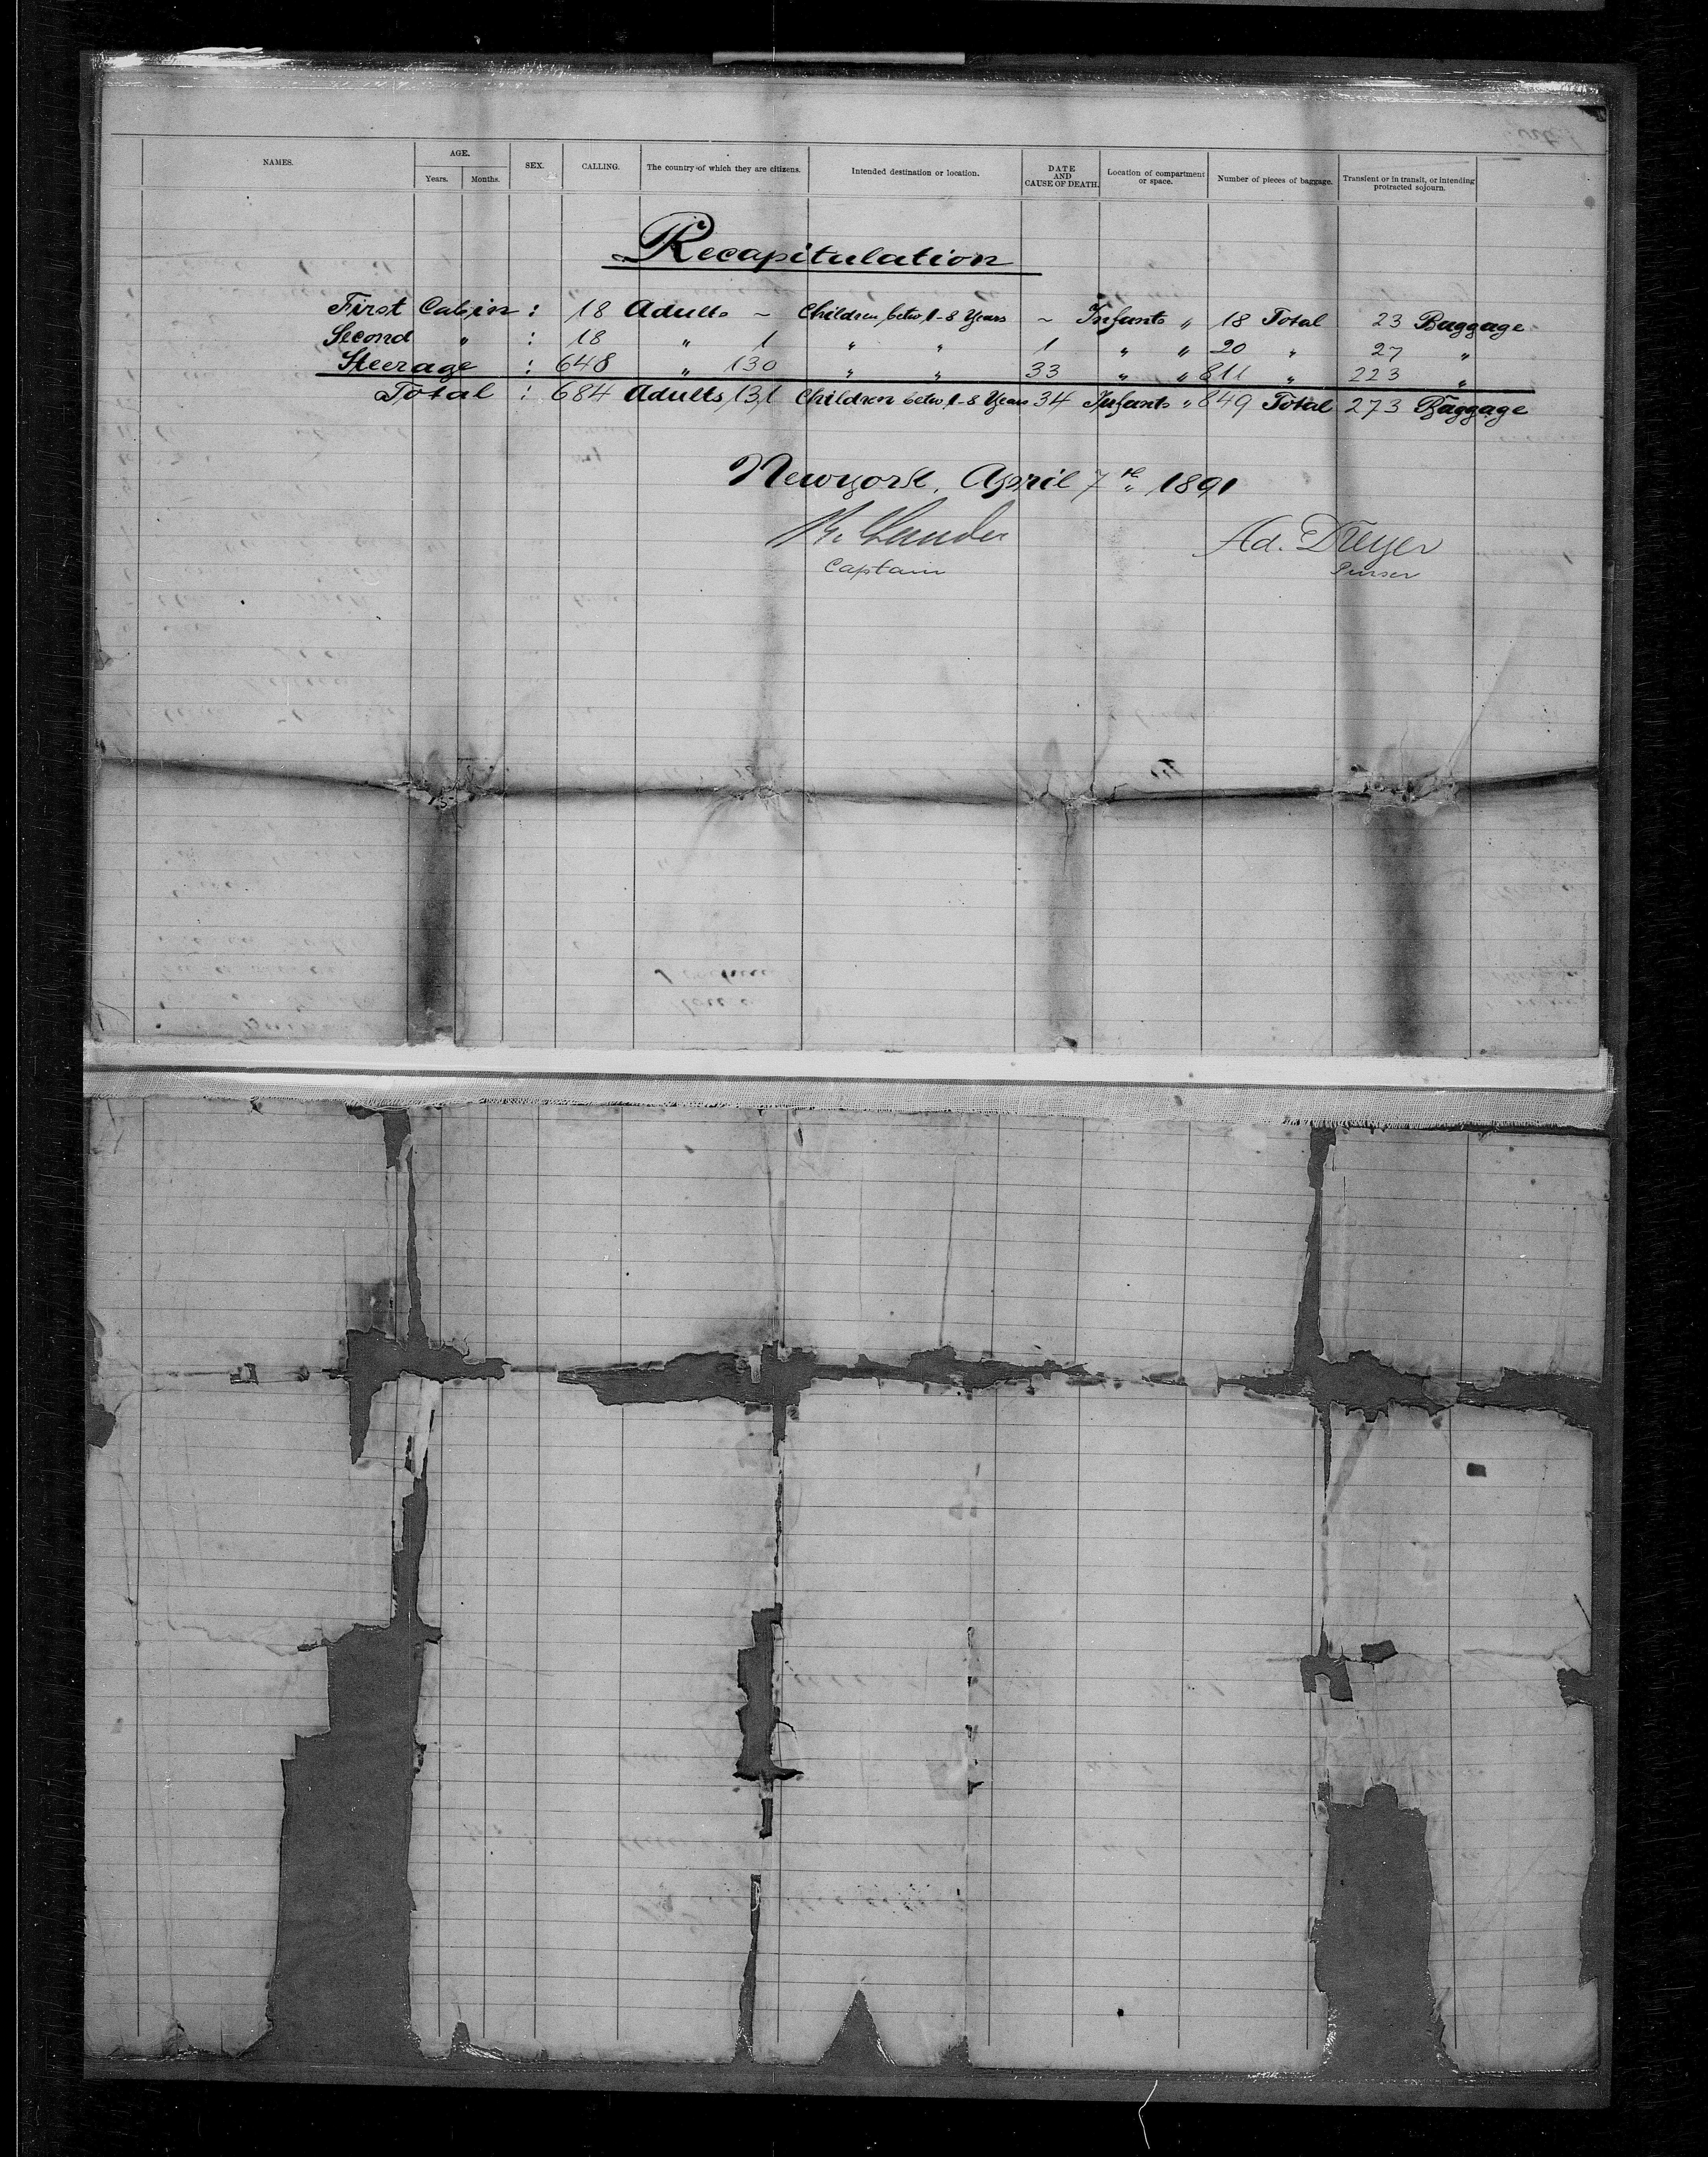 NAMES. AGE. SEX. CALLING. The country of which they are citizens. Intended destination or location. DATE AND CAUSE OF DEATH. Location of compartment or space. Number of pieces of baggage. Transient or in transit, or intending protracted sojourn.
Years. Months.
Recapitulation
First Cabin : 18 Adults ~ Children betw. 1-8 Years ~ Infants " 18 Total 23 Baggage
Second " : 18 " 1 " " 1 " " 20 " 27 "
Steerage : 648 " 130 " " 33 " " 811 " 223 "
Total : 684 Adults, 131 Children betw. 1-8 Years 34 Infants " 849 Total 273 Baggage
Newyork, April 7th 1891
Ad. Dreyer
Captain Purser